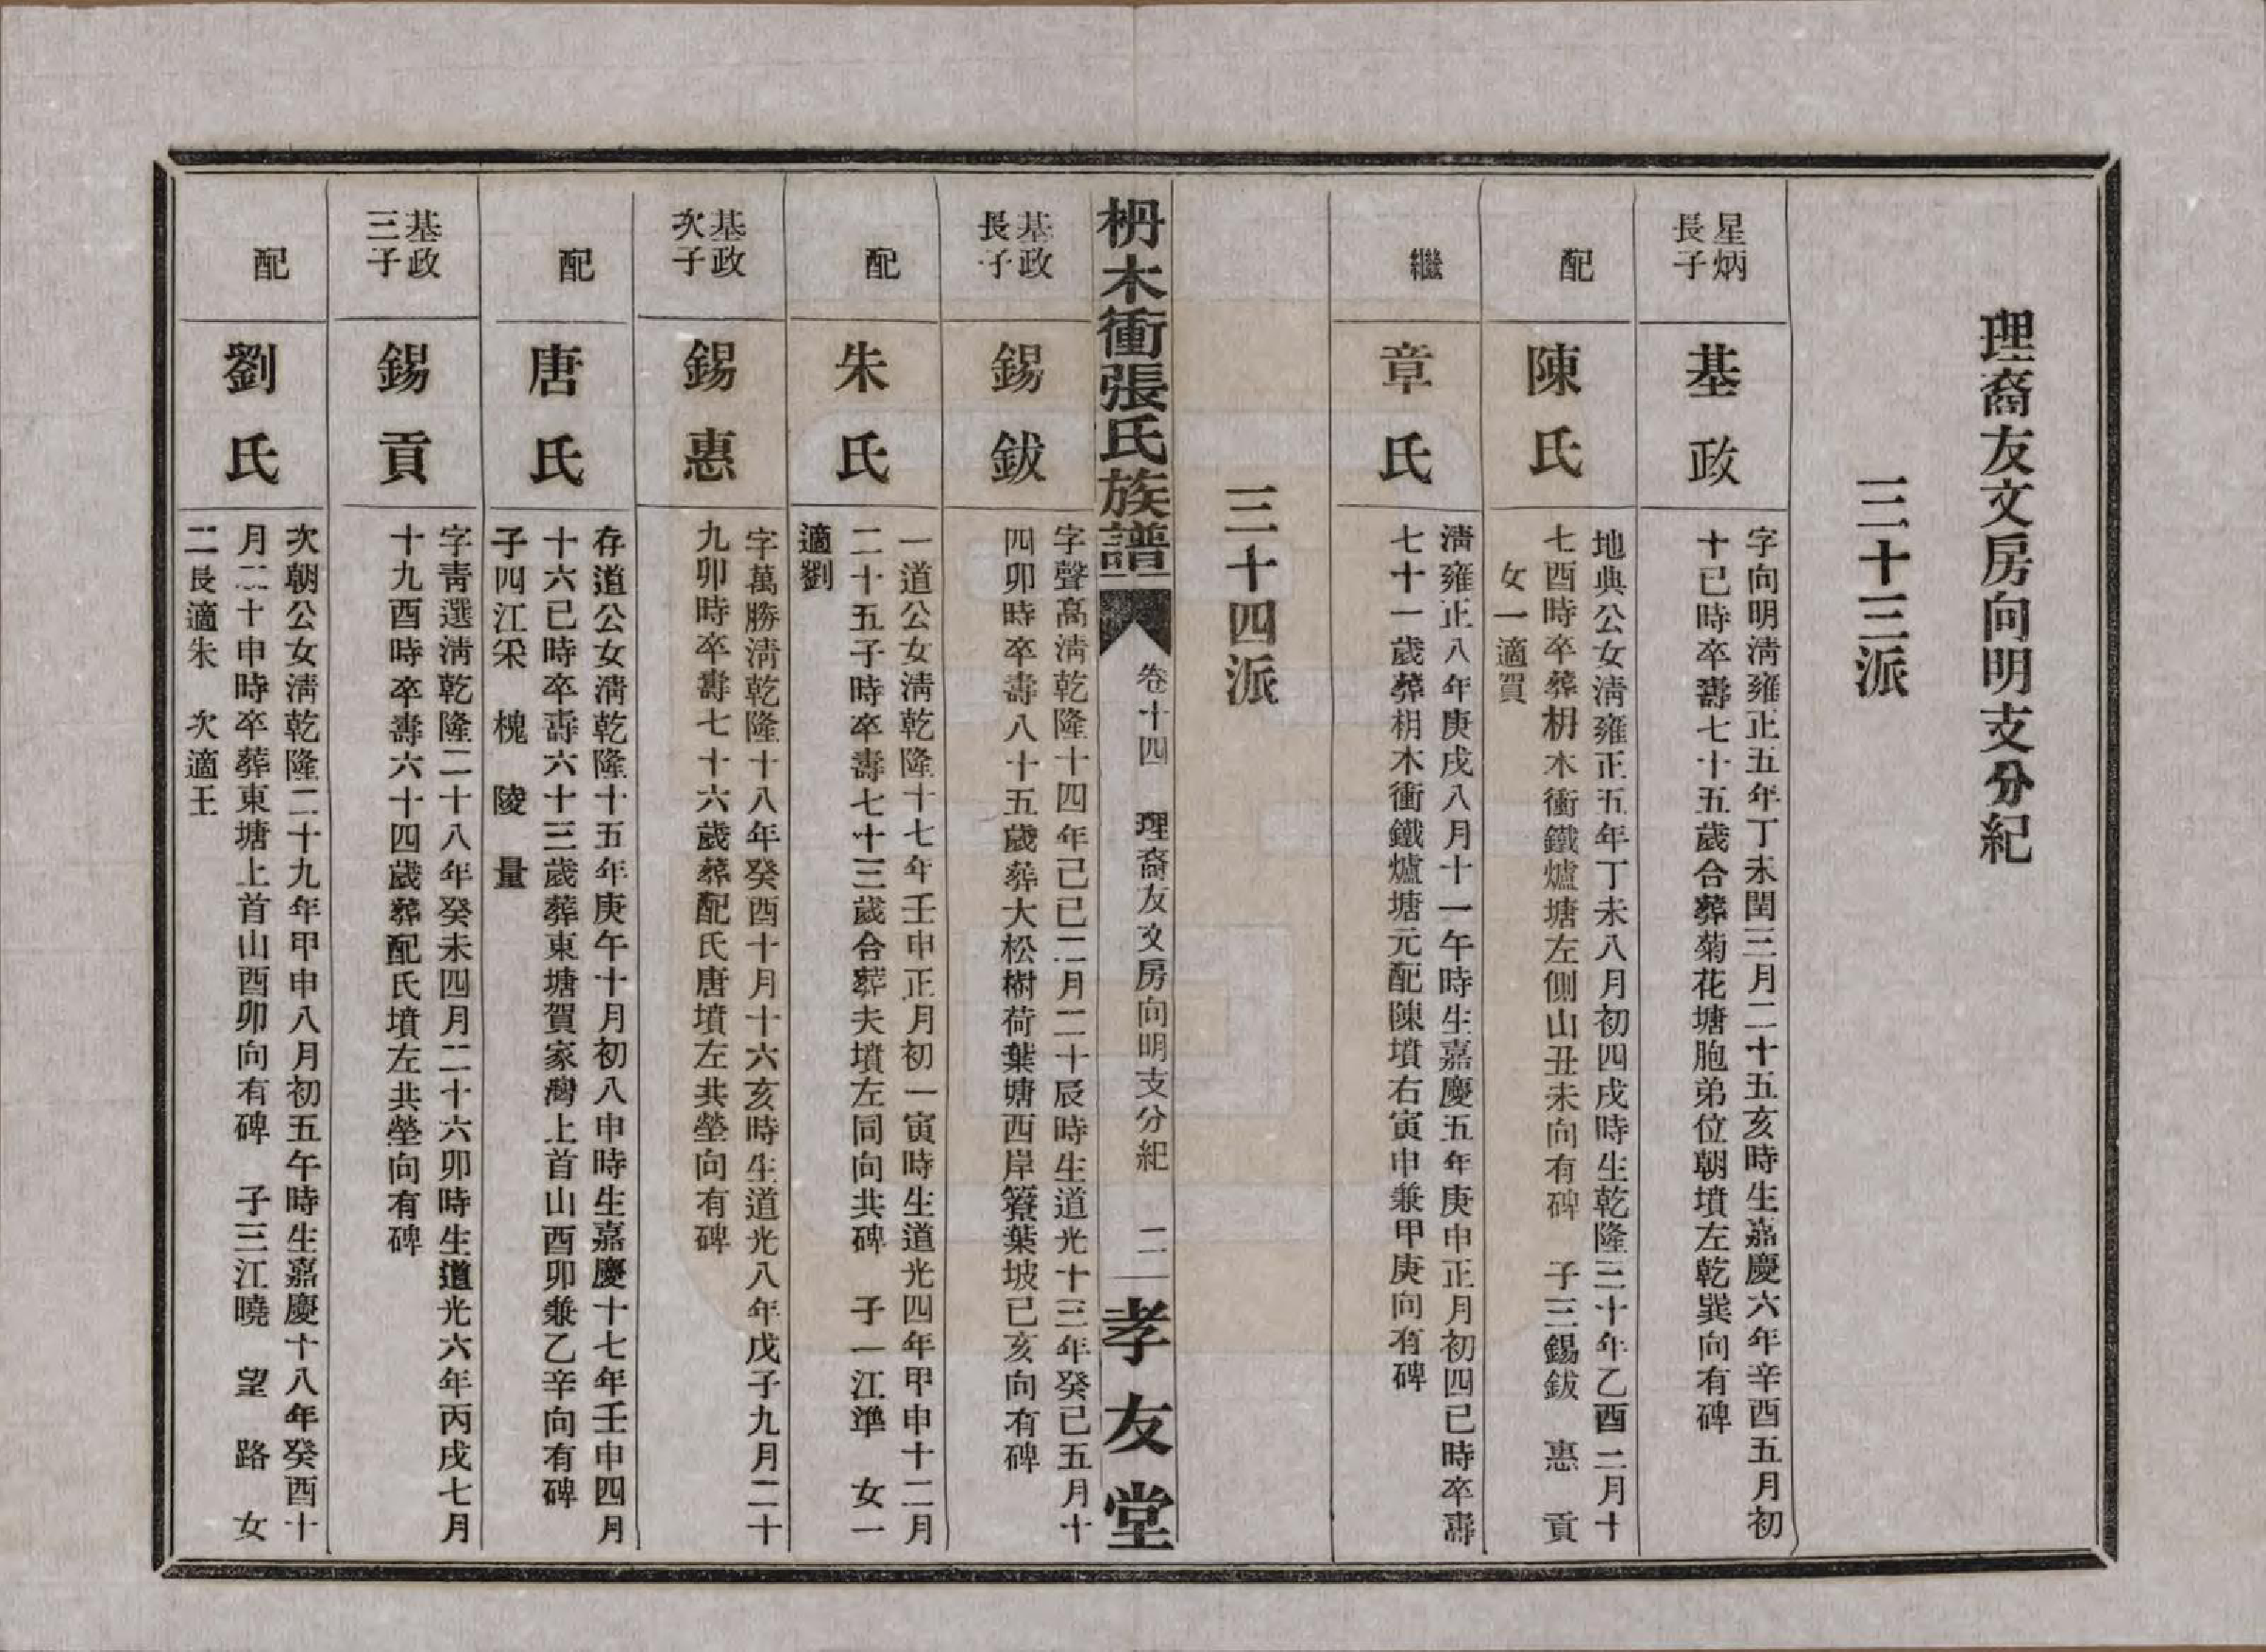 理裔友文房向明支分紀
三十三派
星炳
長子
基政
字向明淸雍正五年丁未閏三月二十五亥時生嘉慶六年辛酉五月初
十巳時卒壽七十五歲合葬菊花塘胞弟位朝墳左乾巽向有碑
配
陳氏
地典公女淸雍正五年丁未八月初四戌時生乾隆三十年乙酉二月十
七酉時卒葬枬木衝鐵爐塘左側山丑未向有碑　子三錫鈸　惠　貢
女一適賀
繼
章氏
淸雍正八年庚戌八月十一午時生嘉慶五年庚申正月初四巳時卒壽
七十一歲葬枬木衝鐵爐塘元配陳墳右寅申兼甲庚向有碑
三十四派
枬木衝張氏族譜
卷十四　理裔友文房向明支分紀　二
孝友堂
基政
長子
錫鈸
字聲高淸乾隆十四年己巳二月二十辰時生道光十三年癸巳五月十
四卯時卒壽八十五歲葬大松樹荷葉塘西岸簝葉坡巳亥向有碑
配
朱氏
一道公女淸乾隆十七年壬申正月初一寅時生道光四年甲申十二月
二十五子時卒壽七十三歲合葬夫墳左同向共碑　子一江準　女一
適劉
基政
次子
錫惠
字萬勝淸乾隆十八年癸酉十月十六亥時生道光八年戊子九月二十
九卯時卒壽七十六歲葬配氏唐墳左共塋向有碑
配
唐氏
存道公女淸乾隆十五年庚午十月初八申時生嘉慶十七年壬申四月
十六巳時卒壽六十三歲葬東塘賀家灣上首山酉卯兼乙辛向有碑
子四江寀　槐　陵　量
基政
三子
錫貢
字靑選淸乾隆二十八年癸未四月二十六卯時生道光六年丙戌七月
十九酉時卒壽六十四歲葬配氏墳左共塋向有碑
配
劉氏
次朝公女淸乾隆二十九年甲申八月初五午時生嘉慶十八年癸酉十
月二十申時卒葬東塘上首山酉卯向有碑　子三江曉　望　路　女
二長適朱　次適王